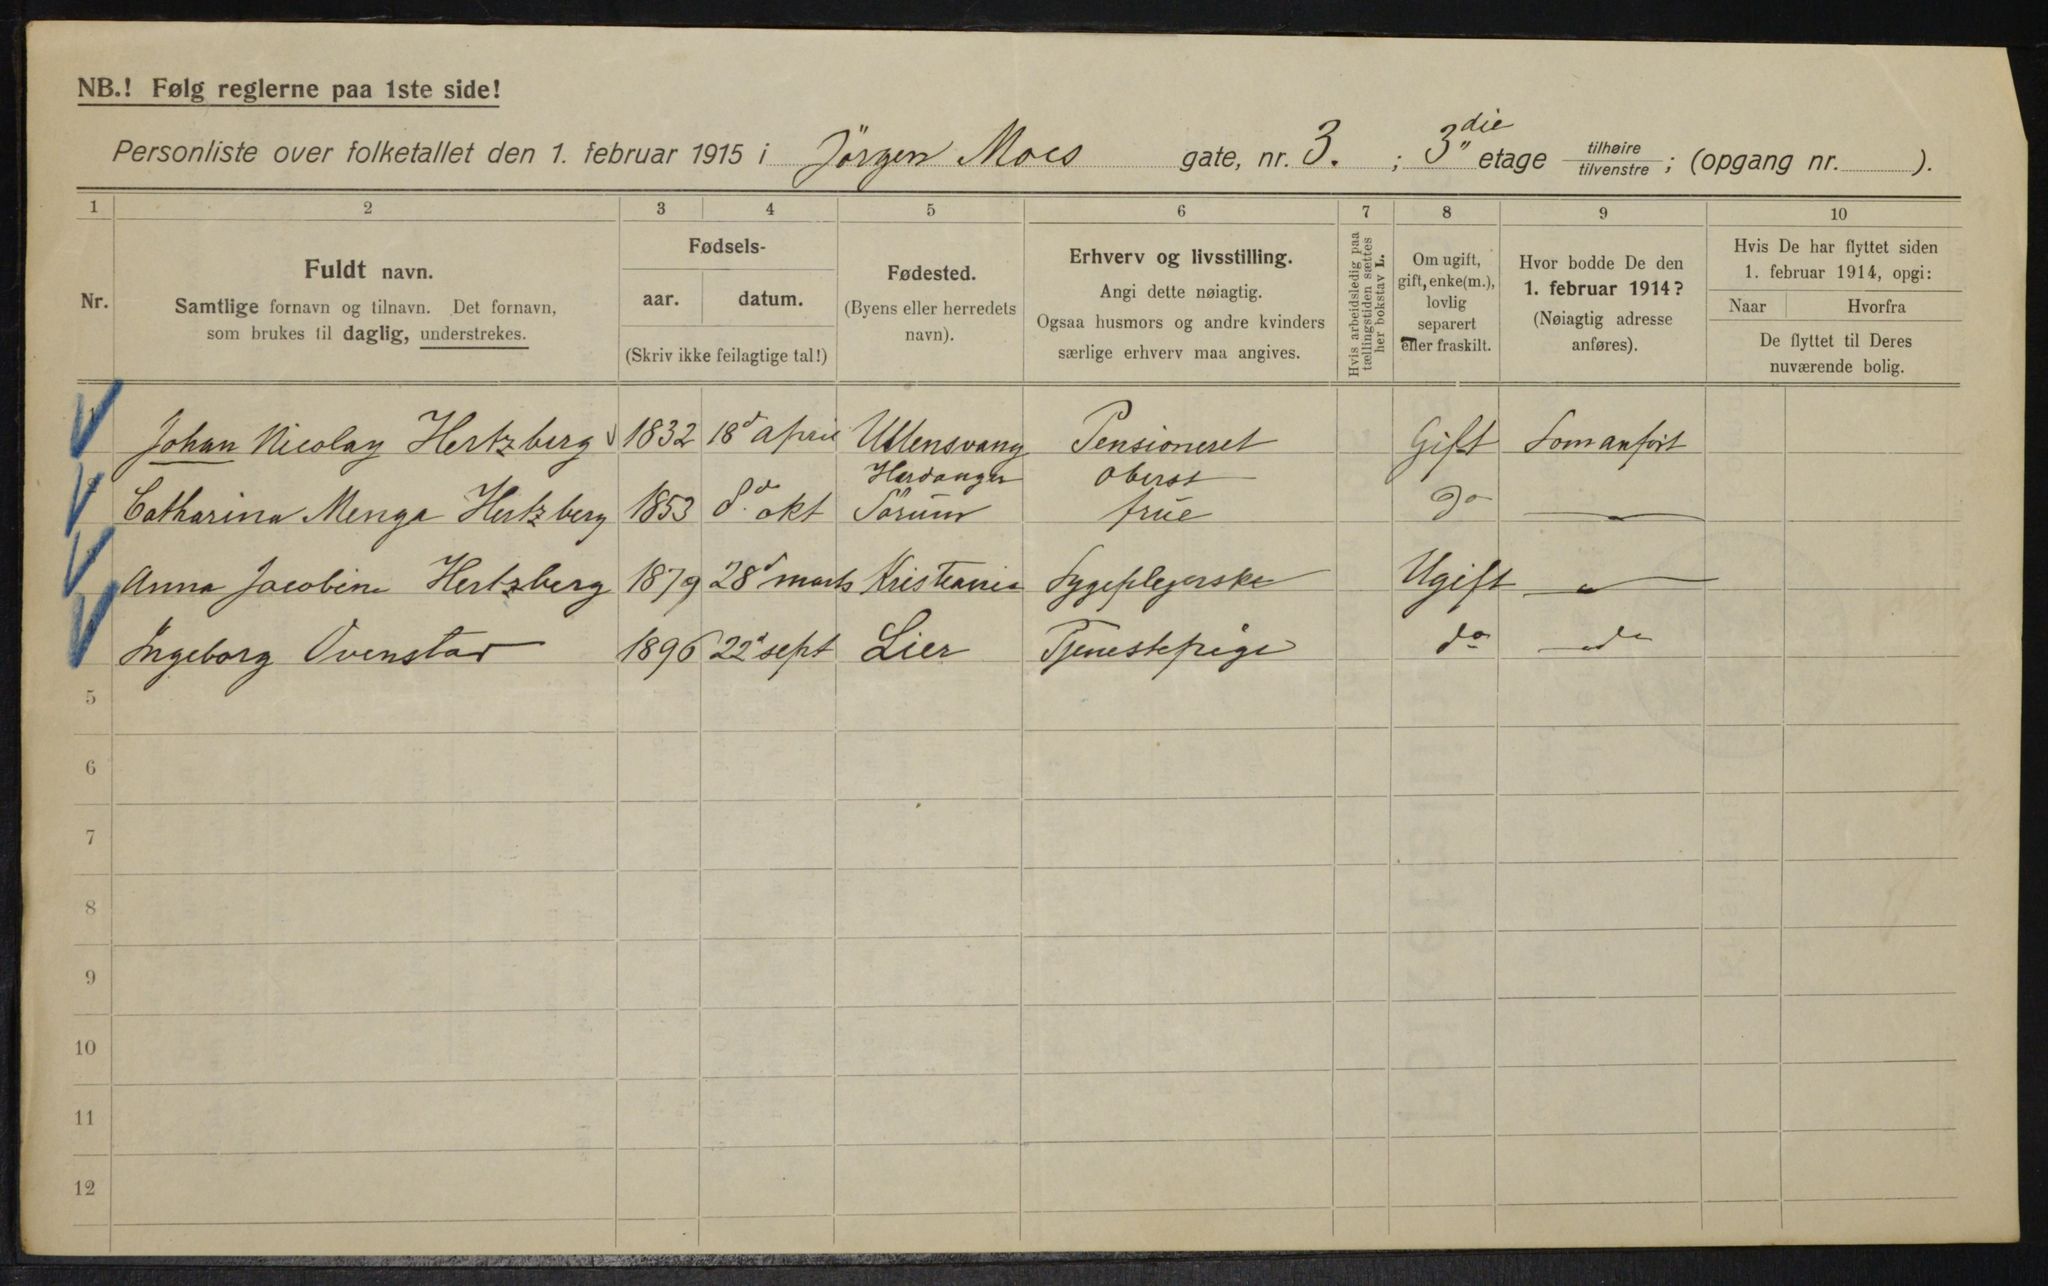 NB.! Følg reglerne paa 1ste side!
Personliste over folketallet den 1. februar 1915 i Jörgen Moes gate, nr. 3. ; 3die etage tilhøire tilvenstre ; (opgang nr. ).
1 2 3 4 5 6 7 8 9 10
Nr.
Fuldt navn.
Samtlige fornavn og tilnavn. Det fornavn,
som brukes til daglig, understrekes.
Fødsels-
aar. datum.
(Skriv ikke feilagtige tal!)
Fødested.
(Byens eller herredets
navn).
Erhverv og livsstilling.
Angi dette nøiagtig.
Ogsaa husmors og andre kvinders
særlige erhverv maa angives.
Hvis arbeidsledig paa
tællingstiden sættes
her bokstav L.
Om ugift,
gift, enke(m.),
lovlig
separert
eller fraskilt.
Hvor bodde De den
1. februar 1914?
(Nøiagtig adresse
anføres).
Hvis De har flyttet siden
1. februar 1914, opgi:
Naar Hvorfra
De flyttet til Deres
nuværende bolig.
Johan Nicolay Hertzberg 1832 18d april Ullensvang Pensioneret Gift Som anført
Hardanger oberst
Catharina Menga Hertzberg 1853 8d. okt Sörum frue do
Anna Jacobine Hertzberg 1879 28d marts Kristiania Sygeplejerske Ugift
Ingeborg Ovenstad 1896 22d sept Lier Tjenestepige do do
5
6
7
8
9
10
11
12